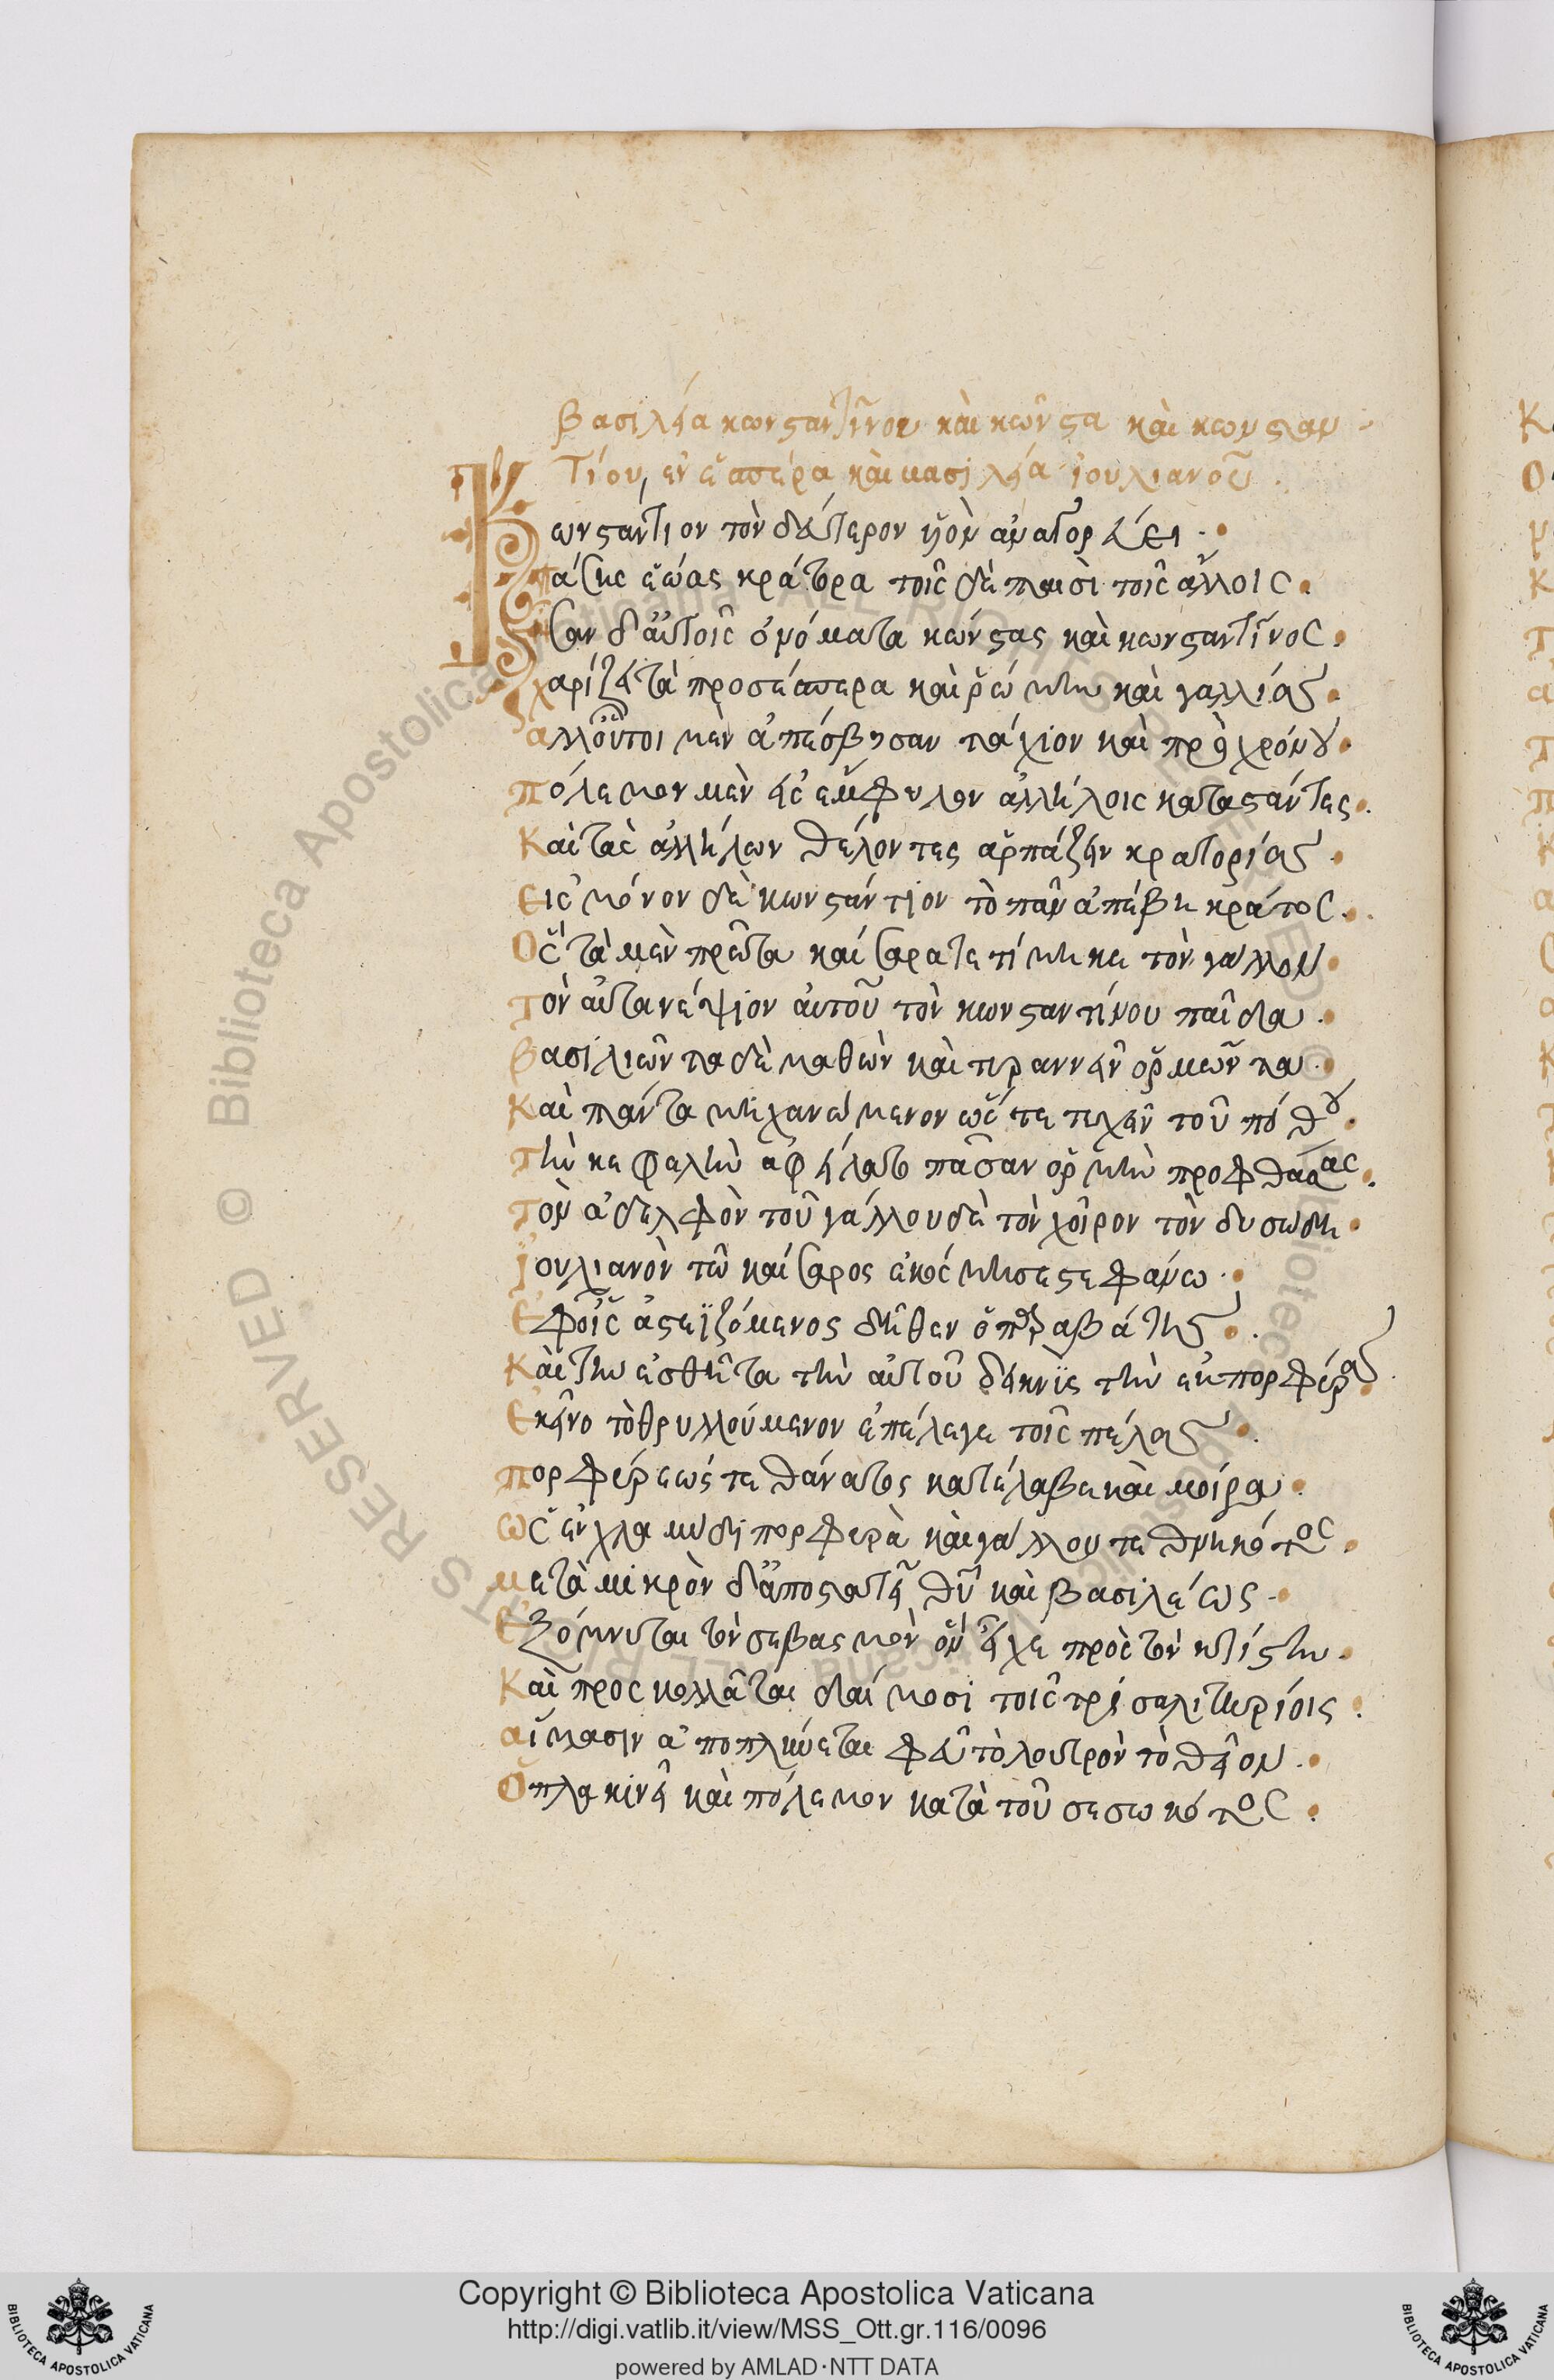 Βασιλεία κωνσταντίνου καὶ κώνστα καὶ κωνσταν
τίου, ἐν ἑσπέρα καὶ βασιλεία ἰουλιανοῦ.
Κωνστάντιον τὸν δεύτερον υἱὸν ἀναγορεύει·
πάσης ἑῴας κράτορα τοῖς δὲ παισὶ τοῖς ἄλλοις.
ἦσαν δ' αὐτοῖς ὀνόματα κώνστας καὶ κωνσταντῖνος.
χαρίζει τὰ προσέσπερα καὶ ῥώμην καὶ γαλλίας.
ἀλλ' οὗτοι μὲν ἀπέσβησαν τάχιον καὶ πρὸ χρόνου.
πόλεμον μὲν εἰς ἔμφυλον ἀλλήλοις καταστάντες.
Καὶ τὰς ἀλλήλων θέλοντες ἁρπάζειν κρατορίας.
Εἰς μόνον δὲ κωνστάντιον τὸ πᾶν ἀπέβη κράτος.
Ὃς τὰ μὲν πρῶτα καίσαρα τετίμηκε τὸν γάλλον.
τὸν αὐτανέψιον αὐτοῦ τὸν κωνσταντίνου παῖδα.
Βασιλιῶντα δὲ μαθὼν καὶ τυραννεῖν ὁρμῶντα.
Καὶ πάντα μηχανώμενον ὥστε τυχεῖν τοῦ πόθου.
τὴν κεφαλὴν ἀφείλατο πᾶσαν ὁρμὴν προφθάσας.
τὸν ἀδελφὸν τοῦ γάλλου δὲ τὸν χοῖρον τὸν δυσώδη.
Ἰουλιανὸν τῶ καίσαρος ἐκόσμησε στεφάνω.
Ἐφ' οἷς ἀστεϊζόμενος δῆθεν ὁ παραβάτης.
Καὶ τὴν ἐσθῆτα τὴν αὐτοῦ δεικνὺς τὴν ἐκ πορφύρας.
Ἐκεῖνο τὸ θρυλλούμενον ἐπέλεγε τοῖς πέλας.
πορφύρεώς τε θάνατος κατέλαβε καὶ μοῖρα.
ὡς ἐν χλαμύδι πορφυρᾶ καὶ γάλλου τεθνηκότος.
μετὰ μικρὸν δ' ἀποστατεῖ θυ καὶ βασιλέως.
Ἐξόμνυται τὸν σεβασμὸν ὃν εἶχε πρὸς τὸν κτίστην.
Καὶ προσκολλᾶται δαίμοσι τοῖς τρισαλιτηρίοις.
αἵμασιν ἀποπλύνεται φεῦ τὸ λουτρὸν τὸ θεῖον.
Ὅπλα κινεῖ καὶ πόλεμον κατὰ τοῦ σεσωκότος.
© Biblioteca Apostolica Vaticana ALL RIGHTS RESERVED
Copyright © Biblioteca Apostolica Vaticana
http://digi.vatlib.it/view/MSS_Ott.gr.116/0096
powered by AMLAD·NTT DATA
BIBLIOTECA APOSTOLICA VATICANA
BIBLIOTECA APOSTOLICA VATICANA